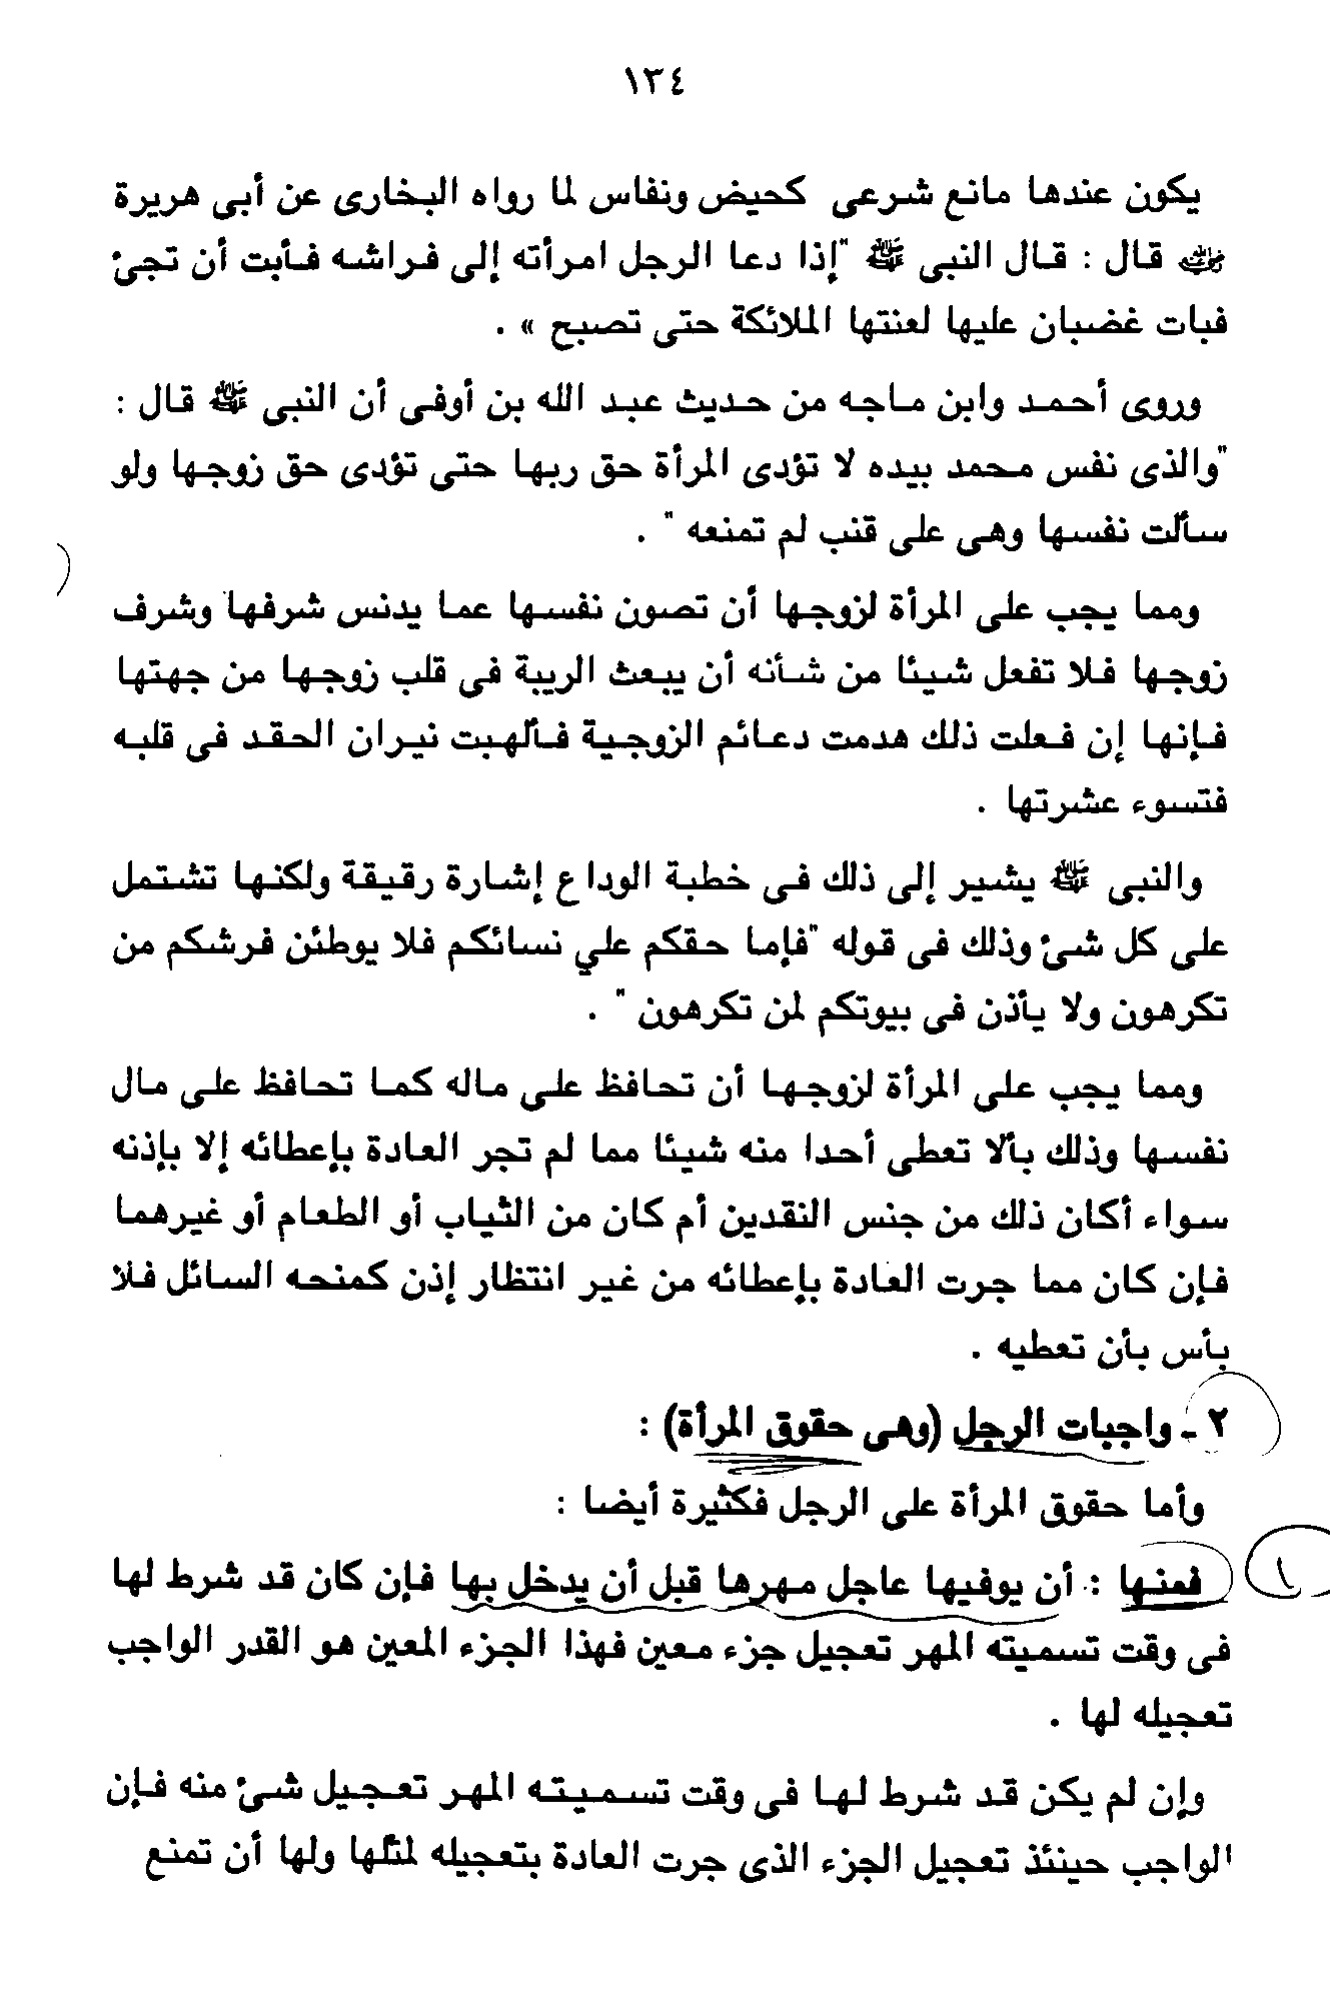 ١٣٤
يكون عندها مانع شرعى كحيض ونفاس لما رواه البخارى عن أبى هريرة
رضي الله عنه قال : قال النبى ﷺ "إذا دعا الرجل امرأته إلى فراشه فأبت أن تجئ
فبات غضبان عليها لعنتها الملائكة حتى تصبح » .
وروى أحمد وابن ماجه من حديث عبد الله بن أوفى أن النبى ﷺ قال :
"والذى نفس محمد بيده لا تؤدى المرأة حق ربها حتى تؤدى حق زوجها ولو
سألت نفسها وهى على قنب لم تمنعه " .
ومما يجب على المرأة لزوجها أن تصون نفسها عما يدنس شرفها وشرف
زوجها فلا تفعل شيئا من شأنه أن يبعث الريبة فى قلب زوجها من جهتها
فإنها إن فعلت ذلك هدمت دعائم الزوجية فألهبت نيران الحقد فى قلبه
فتسوء عشرتها .
والنبى ﷺ يشير إلى ذلك فى خطبة الوداع إشارة رقيقة ولكنها تشتمل
على كل شئ وذلك فى قوله "فإما حقكم علي نسائكم فلا يوطئن فرشكم من
تكرهون ولا يأذن فى بيوتكم لمن تكرهون " .
ومما يجب على المرأة لزوجها أن تحافظ على ماله كما تحافظ على مال
نفسها وذلك بألا تعطى أحدا منه شيئا مما لم تجر العادة بإعطائه إلا بإذنه
سواء أكان ذلك من جنس النقدين أم كان من الثياب أو الطعام أو غيرهما
فإن كان مما جرت العادة بإعطائه من غير انتظار إذن كمنحه السائل فلا
بأس بأن تعطيه .
٢ - واجبات الرجل (وهى حقوق المرأة) :
وأما حقوق المرأة على الرجل فكثيرة أيضا :
١
فمنها : أن يوفيها عاجل مهرها قبل أن يدخل بها فإن كان قد شرط لها
فى وقت تسميته المهر تعجيل جزء معين فهذا الجزء المعين هو القدر الواجب
تعجيله لها .
وإن لم يكن قد شرط لها فى وقت تسميته المهر تعجيل شئ منه فإن
الواجب حينئذ تعجيل الجزء الذى جرت العادة بتعجيله لمثلها ولها أن تمنع